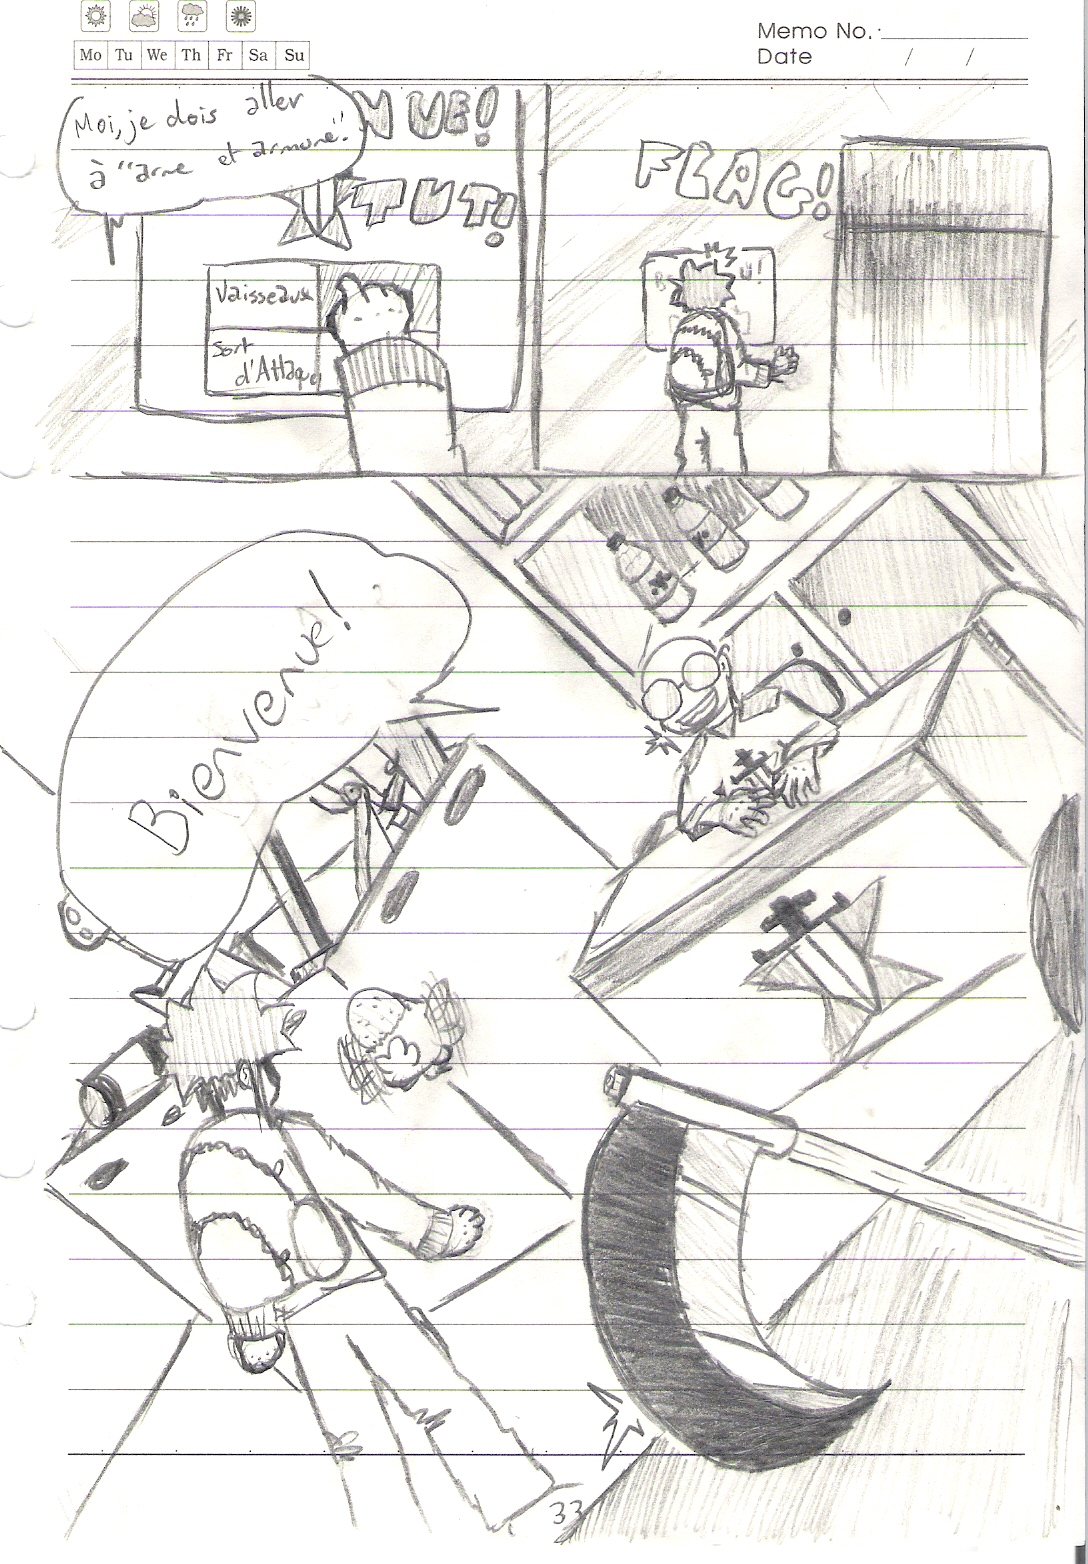 Memo No.
Mo Tu We Th Fr Sa Su
Date / /
Moi, je dois aller
à "arme et armure".
NUE!
TUT!
Vaisseaux
Sort
d'Attaque
FLAG!
B U!
Bienvenue!
33